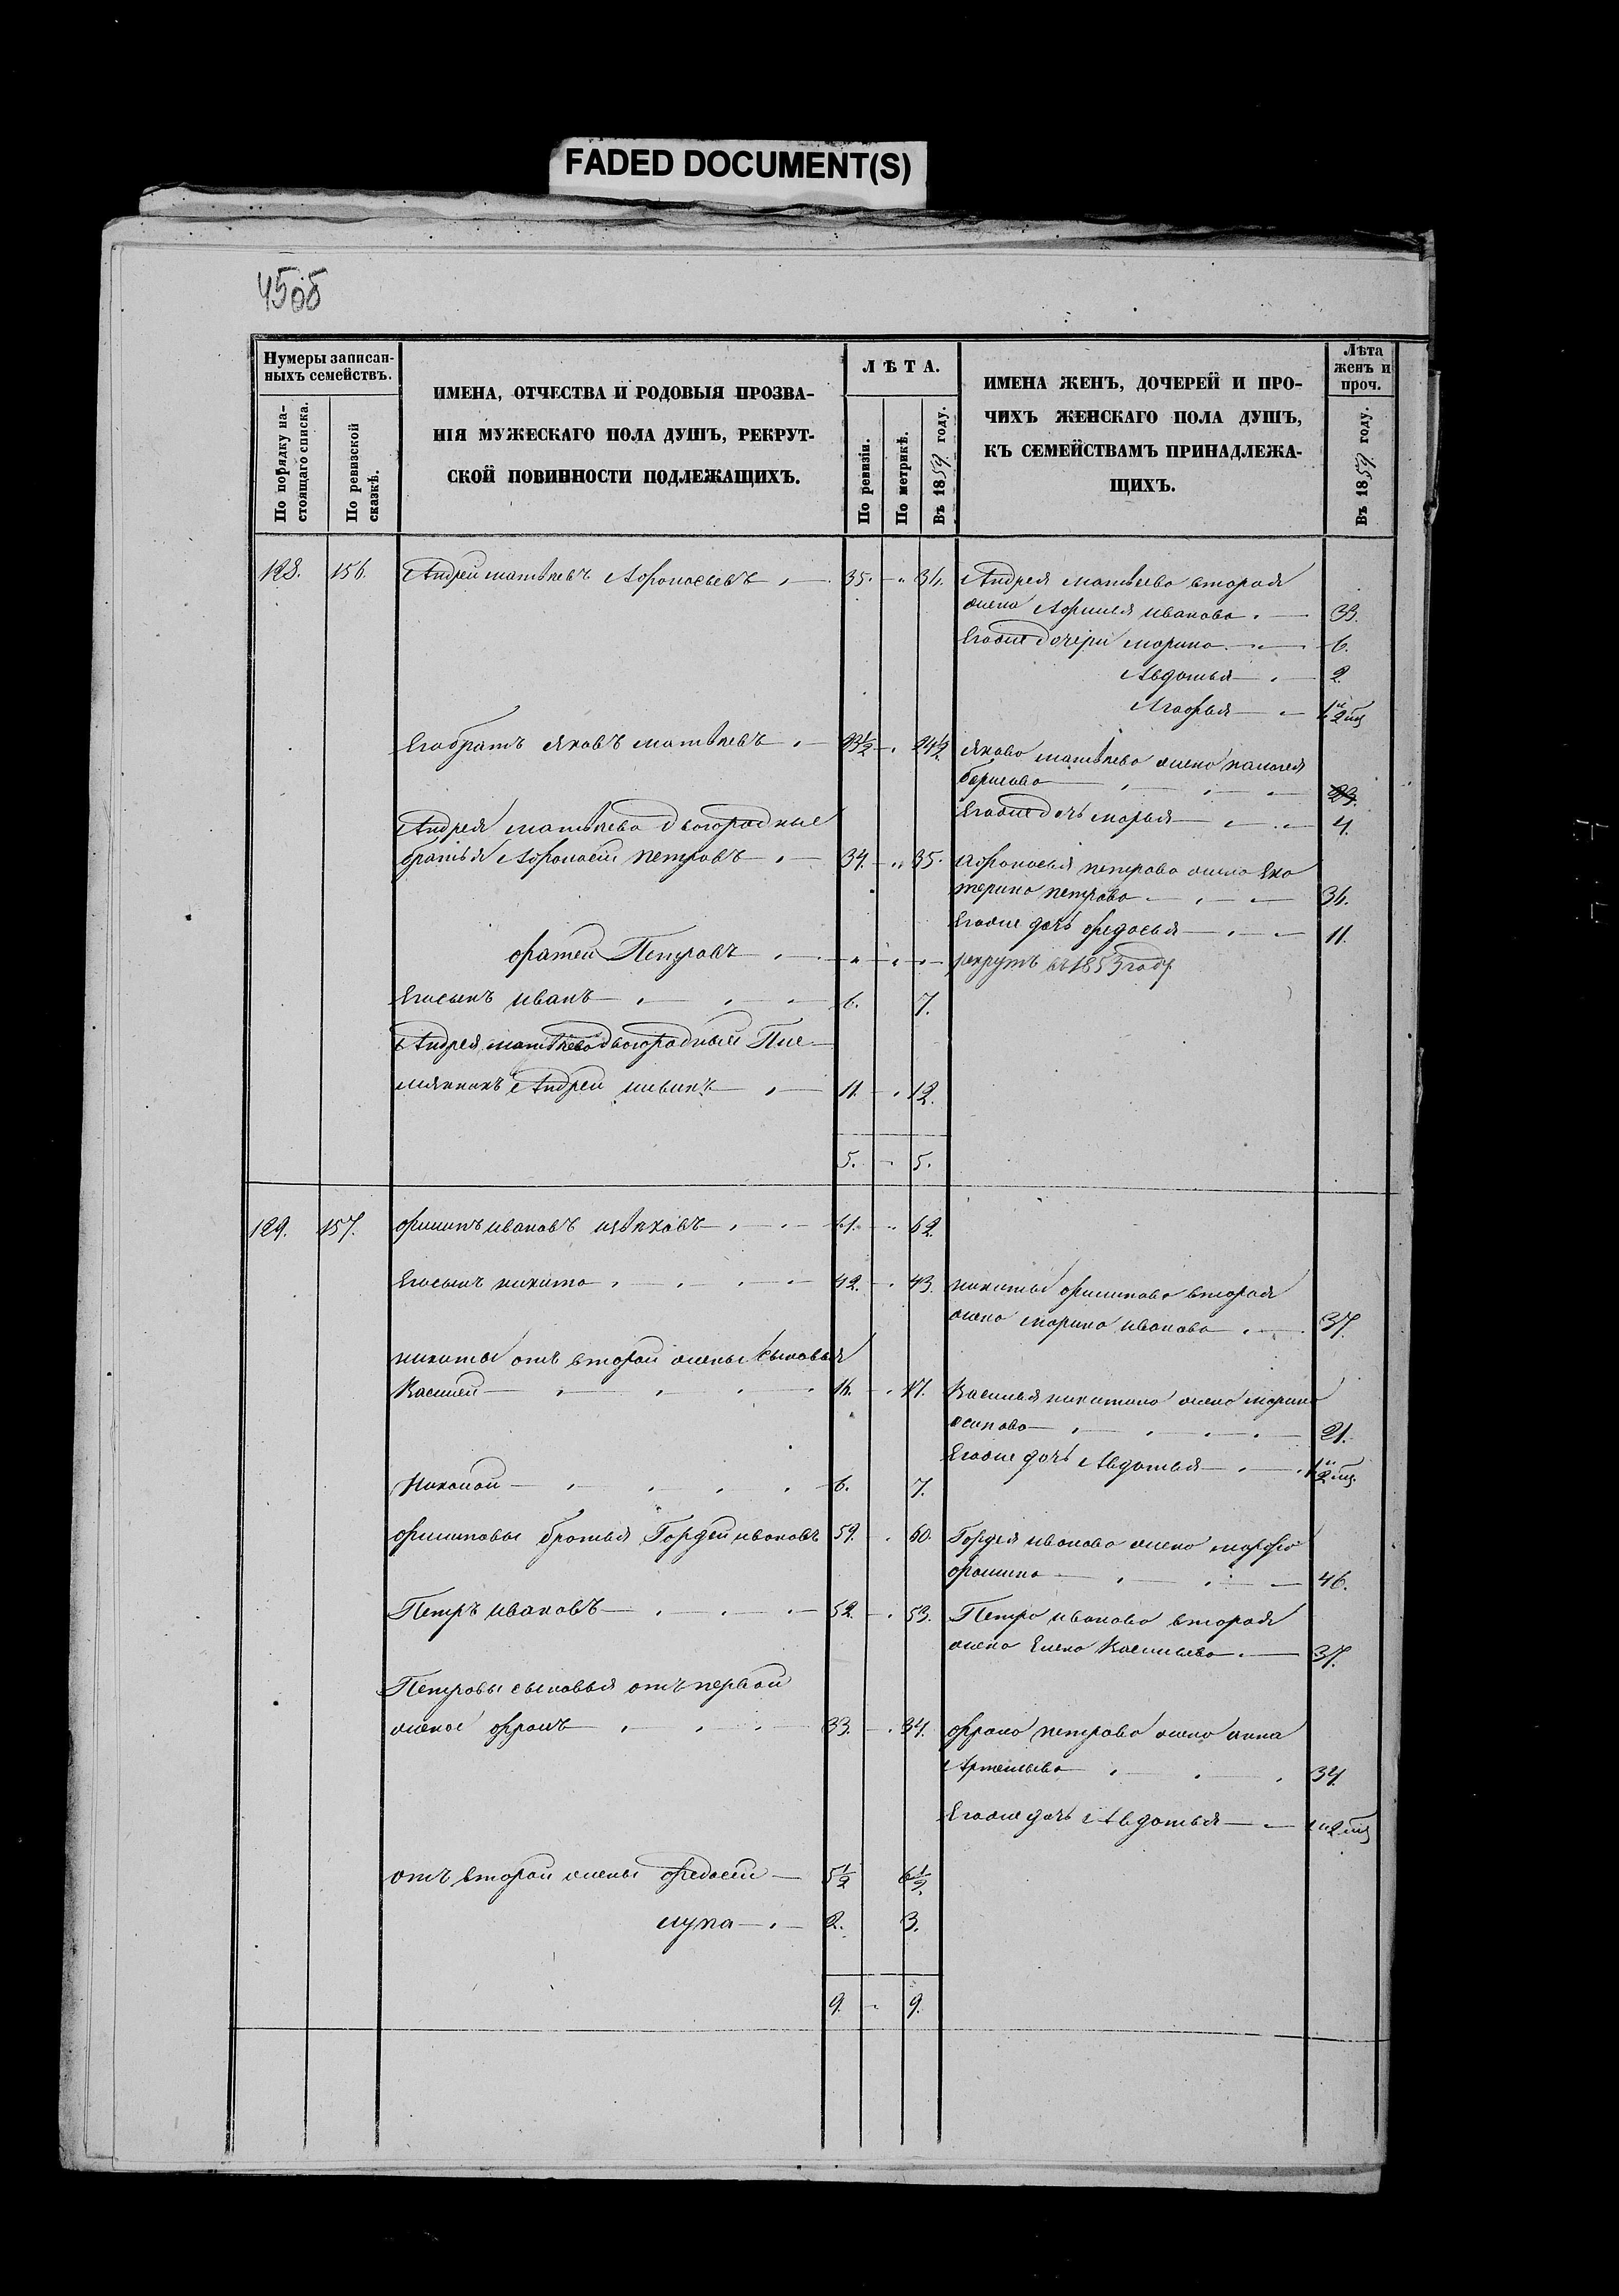 FADED DOCUMENT(S)
Нумеры записан-
ныхъ семействъ.
По порядку на-
стоящаго списка.
По ревизской
сказкѣ.
ИМЕНА, ОТЧЕСТВА И РОДОВЫЯ ПРОЗВА-
НІЯ МУЖЕСКАГО ПОЛА ДУШЪ, РЕКРУТ-
СКОЙ ПОВИННОСТИ ПОДЛЕЖАЩИХЪ.
ЛѢТА.
По ревизіи.
По метрикѣ.
Въ 1859 году.
ИМЕНА ЖЕНЪ, ДОЧЕРЕЙ И ПРО-
ЧИХЪ ЖЕНСКАГО ПОЛА ДУШЪ,
КЪ СЕМЕЙСТВАМЪ ПРИНАДЛЕЖА-
ЩИХЪ.
Лѣта
женъ и
проч.
Въ 1859 году.
128. 156. Андрей матвѣевъ Афонасьевъ 35. 36. Андрея матвѣева вторая
жена Афимья иванова 33.
Егоже дочери марина 6.
Авдотья 2
Агафья
Егобратъ яковъ матвѣевъ 23½ 24½ якова матвѣева жена
борисова 23.
Егоже дочь марья 4.
Андрея матвѣева двоюродные
братья Афонасей петровъ 34. 35. Афонасья петрова жена Ека
терина петрова 36.
Егоже дочь федосья 11.
фатей Петровъ рекрутъ въ 1853 году
Егосынъ иванъ 6. 7.
Андрея матвѣева двоюродный Пле
мянникъ Андрей 11. 12.
5. 5.
129. 157. филипъ ивановъ 61. 62
Егосынъ никита 42. 43. никиты филипова вторая
жена марина иванова 37.
никиты отъ второй жены сыновья
Василей 16. 17. Василья никитина жена марина
осипова 21.
Егоже дочь Авдотья
6. 7.
филиповы братья Гордей ивановъ 59. 60. Гордея иванова жена марфа
фомина 46.
Петръ ивановъ 52. 53. Петра иванова вторая
жена Елена Васильева 37.
Петровы сыновья отъ первой
жены фролъ 33. 34. фрола петрова жена анна
Артемьева 34
Егоже дочь Авдотья
отъ второй жены федосей 5½ 6½
лупа 2. 3.
9. 9.